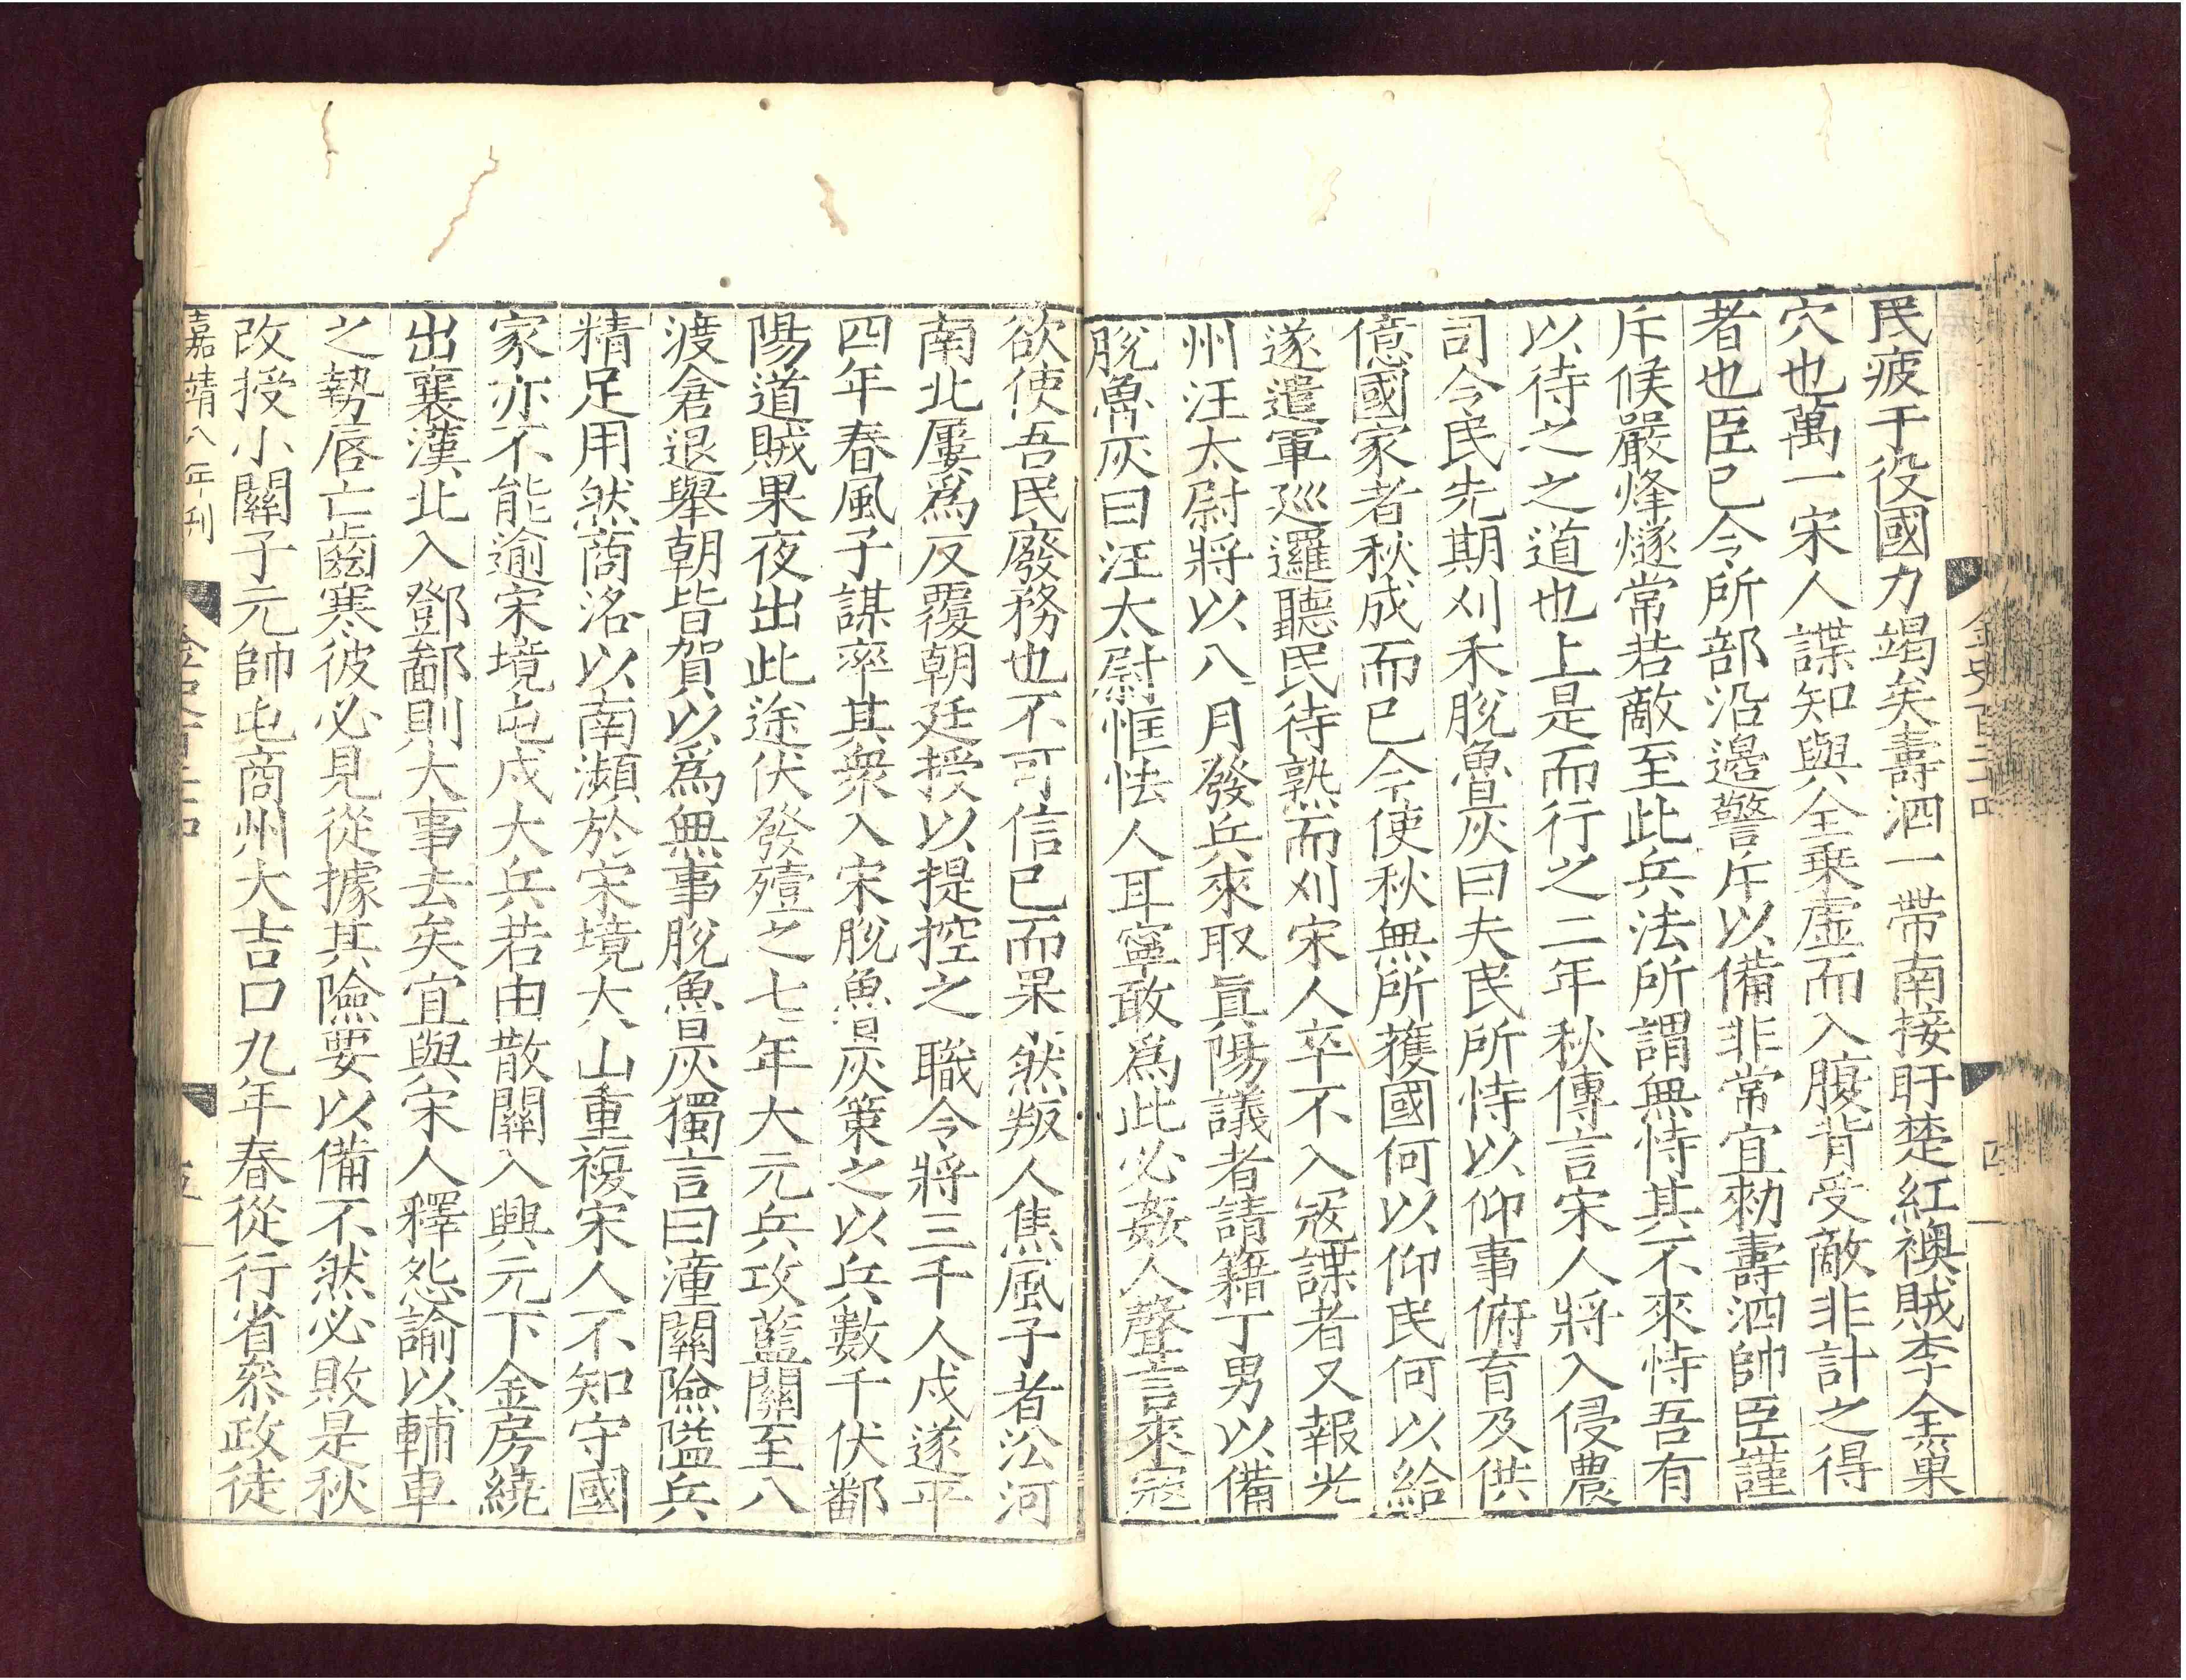 金史百二十四
四
民疲于役國力竭矣壽泗一帶南接盱楚紅襖賊李全巢
穴也萬一宋人諜知與全乗虛而入腹背受敵非計之得
者也臣已令所部沿邊警斥以備非常宜勑壽泗帥臣謹
斥候嚴烽燧常若敵至此兵法所謂無恃其不來恃吾有
以待之之道也上是而行之二年秋傳言宋人將入侵農
司令民先期刈禾脫魯灰曰夫民所恃以仰事俯育及供
億國家者秋成而已今使秋無所獲國何以仰民何以給
遂遣軍巡邏聽民待熟而刈宋人卒不入冦諜者又報光
州汪太尉將以八月發兵來取眞陽議者請籍丁男以備
脫魯灰曰汪太尉恇怯人耳寧敢爲此必姦人聲言來冦
欲使吾民廢務也不可信已而果然叛人焦風子者沿河
南北屢爲反覆朝廷授以提控之職令將三千人戍遂平
四年春風子謀率其衆入宋脫魯灰策之以兵數千伏鄱
陽道賊果夜出此途伏發殪之七年大元兵攻藍關至八
渡倉退舉朝皆賀以爲無事脫魯灰獨言曰潼關險隘兵
精足用然商洛以南瀕於宋境大山重複宋人不知守國
家亦不能逾宋境屯戍大兵若由散關入興元下金房繞
出襄漢北入鄧鄙則大事去矣宜與宋人釋怨諭以輔車
之勢唇亡齒寒彼必見從據其險要以備不然必敗是秋
改授小關子元帥屯商州大吉口九年春從行省叅政徒
嘉靖八年刊
金史百二十四
五